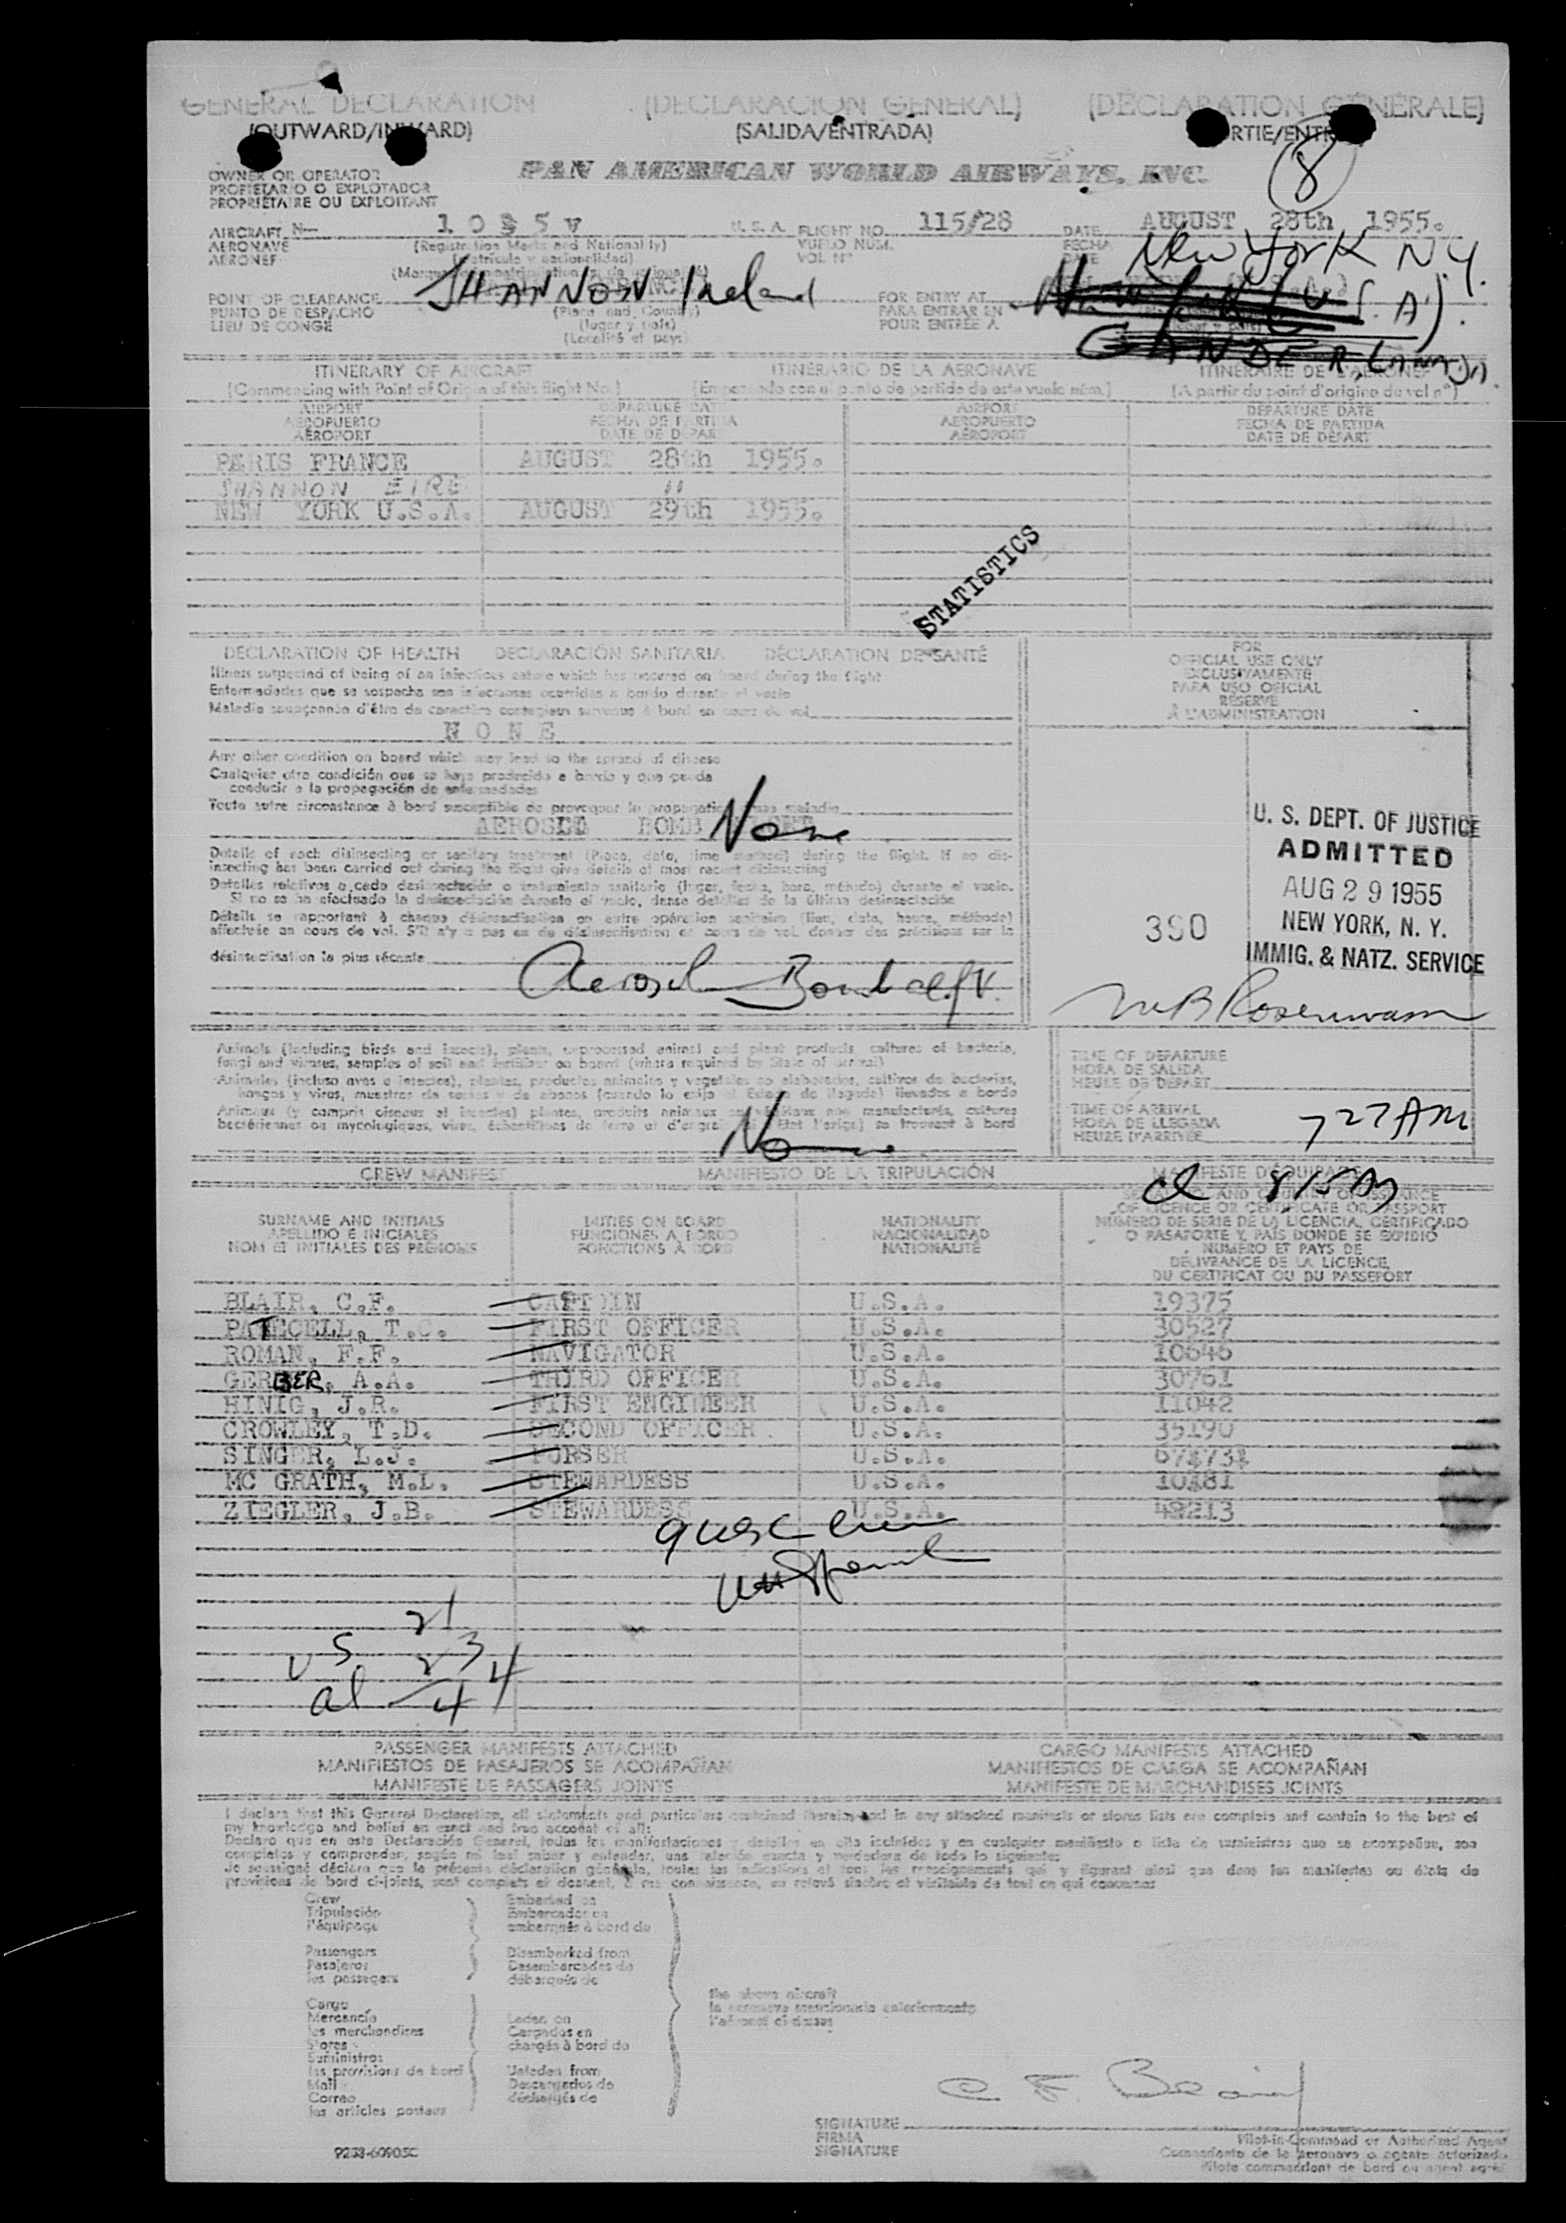 GENERAL DECLARATION (DECLARACIÓN GENERAL) (DÉCLARATION GÉNÉRALE)
(OUTWARD/INWARD) (SALIDA/ENTRADA)
8
OWNER OR OPERATOR
PROPIETARIO O EXPLOTADOR
PROPRIÉTAIRE OU EXPLOITANT
PAN AMERICAN WORLD AIRWAYS, INC.
AIRCRAFT N— U.S.A. FLIGHT NO. 115/28 DATE AUGUST 28th 1955.
AERONAVE (Registration Marks and Nationality) VUELO NÚM. FECHA
AÉRONEF (Matrícula y nacionalidad) VOL N° DATE
New York N.Y.
POINT OF CLEARANCE SHANNON Ireland FOR ENTRY AT
PUNTO DE DESPACHO (Place and Country) PARA ENTRAR EN
LIEU DE CONGÉ (lugar y país) POUR ENTRÉE À
(Localité et pays)
GANDER, CANADA
ITINERARY OF AIRCRAFT ITINERARIO DE LA AERONAVE ITINÉRAIRE DE L'AÉRONEF
(Commencing with Point of Origin of this flight No.) (Empezando con el punto de partida de este vuelo núm.) (A partir du point d'origine du vol n°)
AIRPORT DEPARTURE DATE AIRPORT DEPARTURE DATE
AEROPUERTO FECHA DE PARTIDA AEROPUERTO FECHA DE PARTIDA
AÉROPORT DATE DE DÉPART AÉROPORT DATE DE DÉPART
PARIS FRANCE AUGUST 28th 1955.
SHANNON EIRE "
NEW YORK U.S.A. AUGUST 29th 1955.
STATISTICS
DECLARATION OF HEALTH DECLARACIÓN SANITARIA DÉCLARATION DE SANTÉ
Illness suspected of being of an infectious nature which has occured on board during the flight
Enfermedades que se sospecha son infecciosas ocurridas a bordo durante el vuelo
Maladie soupçonnée d'être de caractère contagieux survenue à bord en cours de vol
NONE
Any other condition on board which may lead to the spread of disease
Cualquier otra condición que se haya producido a bordo y que pueda
conducir a la propagación de enfermedades
Toute autre circonstance à bord susceptible de provoquer la propagation maladie
AEROSLE BOMB None
Details of each disinsecting or sanitary treatment (Place, date, time method) during the flight. If no dis-
insecting has been carried out during the flight give details of most recent disinsecting
Detalles relativos a cada desinsectación o tratamiento sanitario (lugar, fecha, hora, método) durante el vuelo.
Si no se ha efectuado la desinsectación durante el vuelo, dense detalles de la última desinsectación
Détails se rapportant à chaque désinsectisation ou autre opération sanitaire (lieu, date, heure, méthode)
effectuée en cours de vol. S'il n'y a pas eu de désinsectisation en cours de vol donner des précisions sur la
désinsectisation la plus récente
Aerosol Bomb
FOR
OFFICIAL USE ONLY
EXCLUSIVAMENTE
PARA USO OFICIAL
RÉSERVÉ
À L'ADMINISTRATION
U. S. DEPT. OF JUSTICE
ADMITTED
AUG 29 1955
390
NEW YORK, N. Y.
IMMIG. & NATZ. SERVICE
Animals (including birds and insects), plants, unprocessed animal and plant products, cultures of bacteria,
fungi and viruses, samples of soil and fertilizer on board (where required by State of arrival)
Animales (incluso aves e insectos), plantas, productos animales y vegetales no elaborados, cultivos de bacterias,
hongos y virus, muestras de tierra y de abonos (cuando lo exija el Estado de llegada) llevados a bordo
Animaux (y compris oiseaux et insectes) plantes, produits animaux non manufacturés, cultures
bactériennes ou mycologiques, virus, échantillons de terre et d'engrais l'exige) se trouvant à bord
None
TIME OF DEPARTURE
HORA DE SALIDA
HEURE DE DÉPART
TIME OF ARRIVAL
HORA DE LLEGADA
HEURE D'ARRIVÉE
727 AM
CREW MANIFEST MANIFIESTO DE LA TRIPULACIÓN MANIFESTE D'ÉQUIPAGE
SURNAME AND INITIALS DUTIES ON BOARD NATIONALITY
APELLIDO E INICIALES FUNCIONES A BORDO NACIONALIDAD
NOM ET INITIALES DES PRÉNOMS FONCTIONS À BORD NATIONALITÉ
OF LICENCE OR CERTIFICATE OR PASSPORT
NÚMERO DE SERIE DE LA LICENCIA, CERTIFICADO
O PASAPORTE Y PAÍS DONDE SE EXPIDIÓ
NUMÉRO ET PAYS DE
DÉLIVRANCE DE LA LICENCE,
DU CERTIFICAT OU DU PASSEPORT
BLAIR, C.F. CAPTAIN U.S.A. 19375
T.C. FIRST OFFICER U.S.A. 30527
ROMAN, F.F. NAVIGATOR U.S.A. 10646
GERBER, A.A. THIRD OFFICER U.S.A. 30761
HINIG, J.R. FIRST ENGINEER U.S.A. 11042
CROWLEY, T.D. SECOND OFFICER U.S.A. 35190
SINGER, L.J. PURSER U.S.A.
MC GRATH, M.L. STEWARDESS U.S.A. 10481
ZIEGLER, J.B. STEWARDESS U.S.A. 48213
21
US 23 4
al 4
PASSENGER MANIFESTS ATTACHED CARGO MANIFESTS ATTACHED
MANIFIESTOS DE PASAJEROS SE ACOMPAÑAN MANIFIESTOS DE CARGA SE ACOMPAÑAN
MANIFESTE DE PASSAGERS JOINTS MANIFESTE DE MARCHANDISES JOINTS
I declare that this General Declaration, all statements and particulars contained therein and in any attached manifests or stores lists are complete and contain to the best of
my knowledge and belief an exact and true account of all:
Declaro que en esta Declaración General, todas las manifestaciones y detalles en ella incluídos y en cualquier manifiesto o lista de suministros que se acompañan, son
completos y comprenden, según mi leal saber y entender, una relación exacta y verdadera de todo lo siguiente:
Je soussigné déclare que la présente déclaration générale, toutes les indications et tous les renseignements qui y figurent ainsi que dans les manifestes ou états de
provisions de bord ci-joints, sont complets et donnent, à ma connaissance, un relevé sincère et véritable de tout ce qui concerne:
Crew Embarked on
Tripulación Embarcados en
l'équipage embarqués à bord de
Passengers Disembarked from
Pasajeros Desembarcados de
les passagers débarqués de
the above aircraft
la aeronave mencionada anteriormente
l'aéronef ci-dessus
Cargo
Mercancía Laden on
les merchandises Cargados en
Stores chargés à bord de
Suministros
les provisions de bord Unladen from
Mail Descargados de
Correo déchargés de
les articles postaux
C F Blair
SIGNATURE
FIRMA Pilot-in-Command or Authorized Agent
SIGNATURE Comandante de la aeronave o agente autorizado
Pilote commandant de bord ou agent agréé
9233-60905C